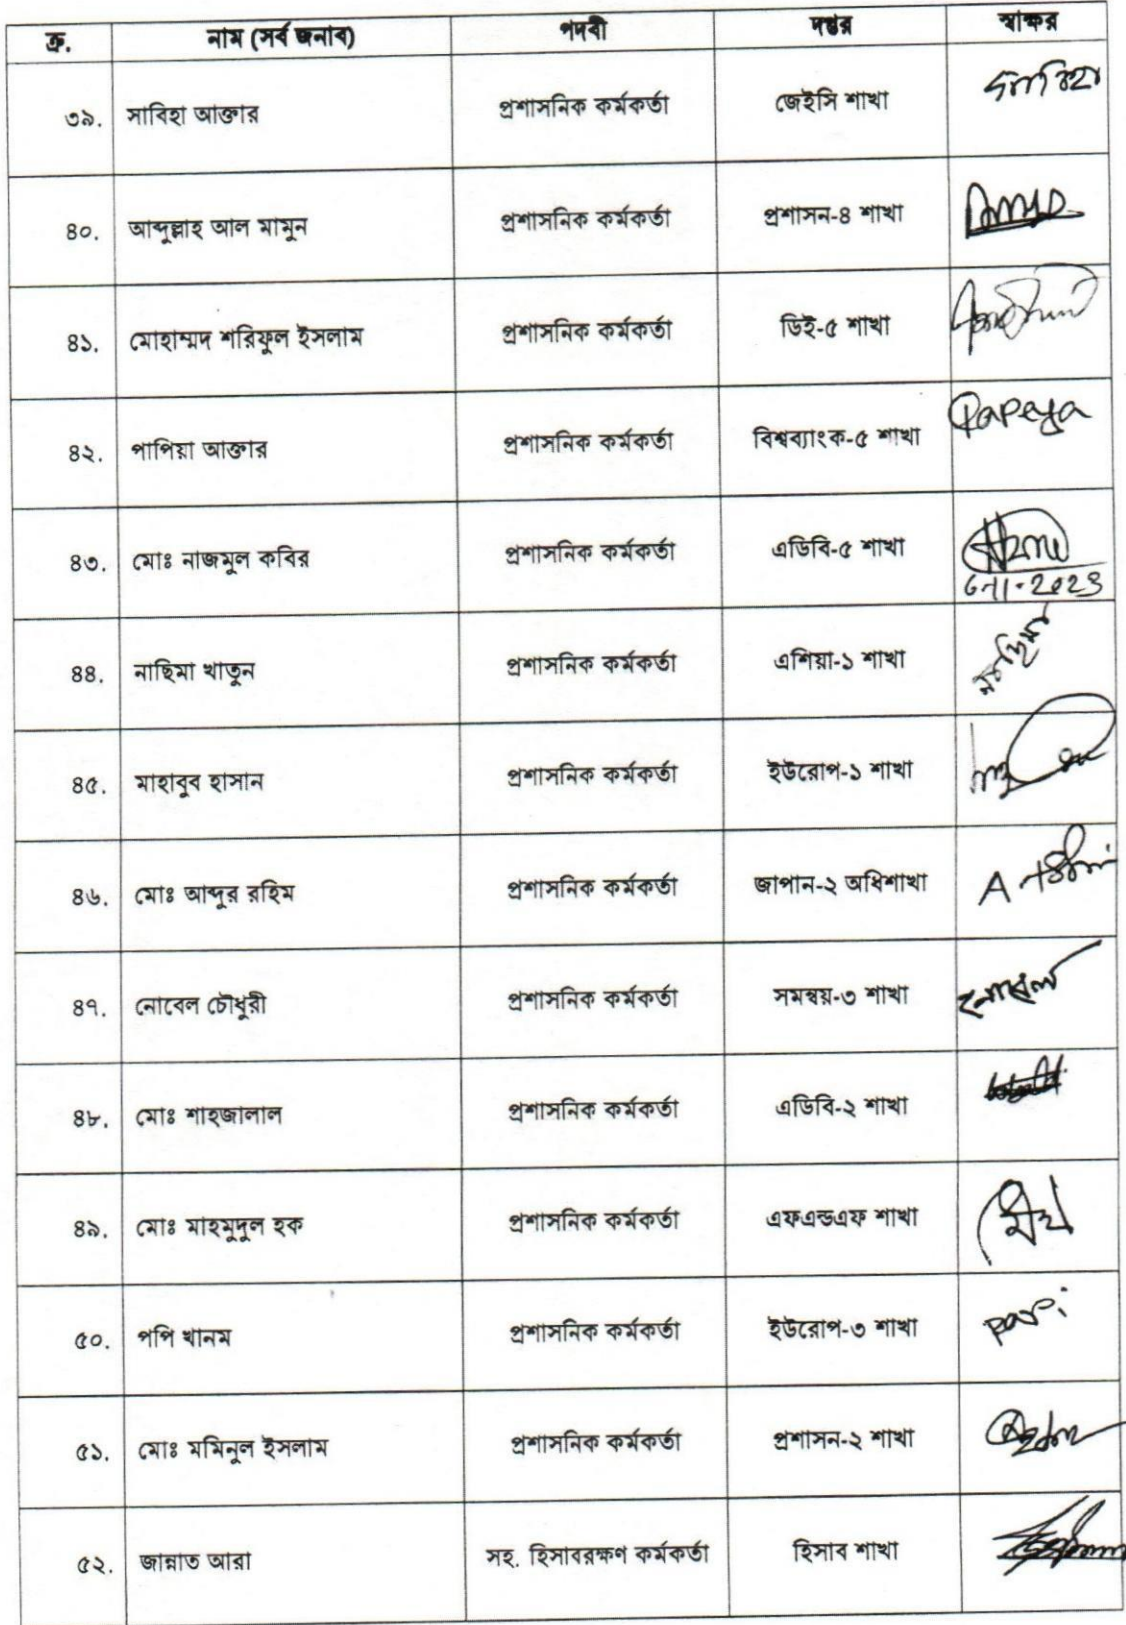 ক্র. নাম (সর্ব জনাব) পদবী দপ্তর স্বাক্ষর
৩৯. সাবিহা আক্তার প্রশাসনিক কর্মকর্তা জেইসি শাখা সাবিহা
৪০. আব্দুল্লাহ আল মামুন প্রশাসনিক কর্মকর্তা প্রশাসন-৪ শাখা
৪১. মোহাম্মদ শরিফুল ইসলাম প্রশাসনিক কর্মকর্তা ডিই-৫ শাখা
৪২. পাপিয়া আক্তার প্রশাসনিক কর্মকর্তা বিশ্বব্যাংক-৫ শাখা Papeya
৪৩. মোঃ নাজমুল কবির প্রশাসনিক কর্মকর্তা এডিবি-৫ শাখা
৪৪. নাছিমা খাতুন প্রশাসনিক কর্মকর্তা এশিয়া-১ শাখা নাছিমা
৪৫. মাহাবুব হাসান প্রশাসনিক কর্মকর্তা ইউরোপ-১ শাখা
৪৬. মোঃ আব্দুর রহিম প্রশাসনিক কর্মকর্তা জাপান-২ অধিশাখা
৪৭. নোবেল চৌধুরী প্রশাসনিক কর্মকর্তা সমন্বয়-৩ শাখা নোবেল
৪৮. মোঃ শাহজালাল প্রশাসনিক কর্মকর্তা এডিবি-২ শাখা
৪৯. মোঃ মাহমুদুল হক প্রশাসনিক কর্মকর্তা এফএন্ডএফ শাখা
৫০. পপি খানম প্রশাসনিক কর্মকর্তা ইউরোপ-৩ শাখা popi
৫১. মোঃ মমিনুল ইসলাম প্রশাসনিক কর্মকর্তা প্রশাসন-২ শাখা
৫২. জান্নাত আরা সহ. হিসাবরক্ষণ কর্মকর্তা হিসাব শাখা